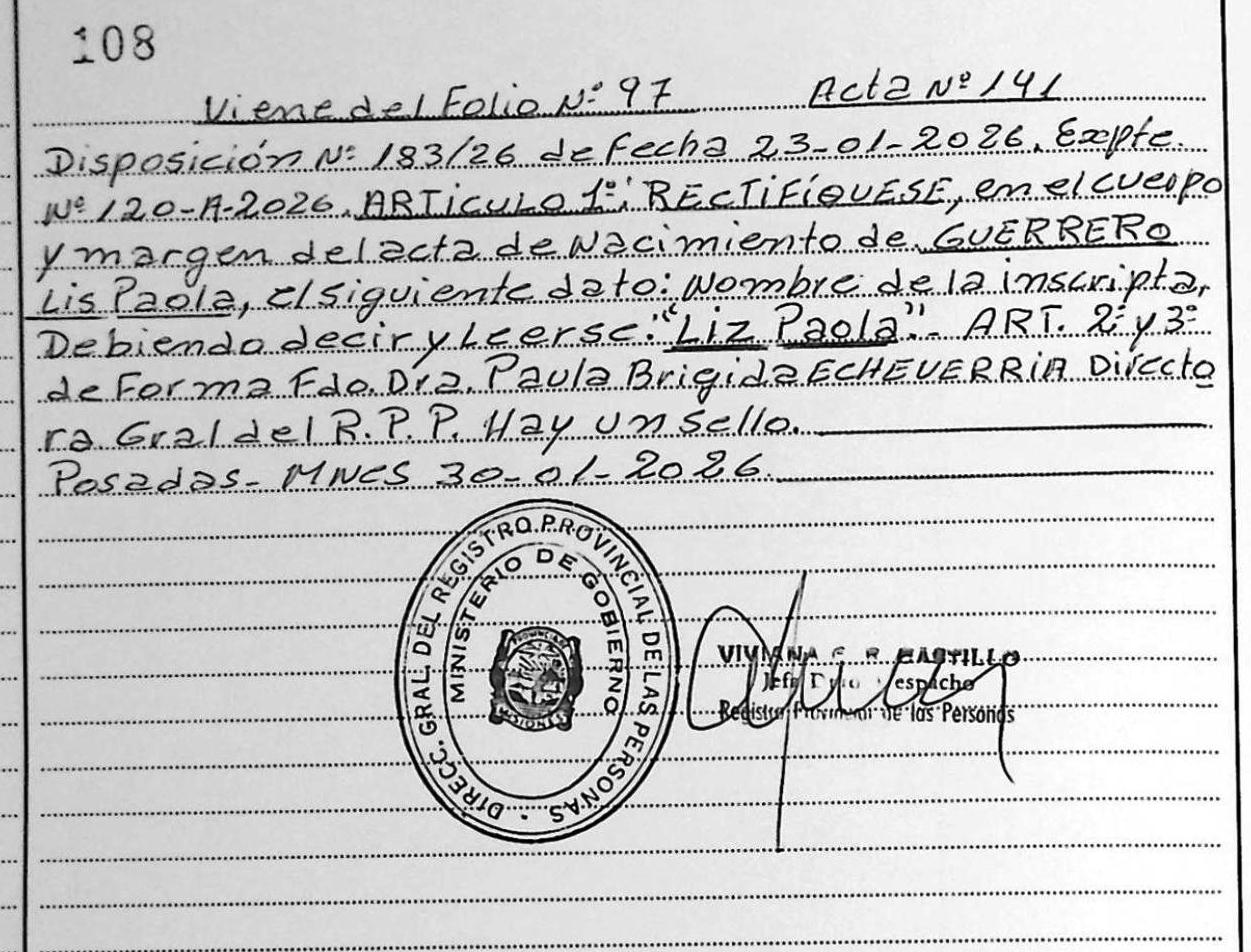 108
Viene del Folio Nº 97 Acta Nº 141
Disposición Nº 183/26 de Fecha 23-01-2026. Expte.
Nº 120-A-2026. ARTiculo 1º: RECTIFíQUESE, en el cuerpo
y margen del acta de Nacimiento de GUERRERO
Lis Paola, el siguiente dato: Nombre de la inscripta,
Debiendo decir y Leerse: "Liz Paola".- ART. 2º y 3º
de Forma Fdo. Dra. Paula Brigida ECHEVERRIA Directo
ra Gral del R. P. P. Hay un sello.
Posadas - MNES 30-01-2026.
DIRECC. GRAL. DEL REGISTRO PROVINCIAL DE LAS PERSONAS
MINISTERIO DE GOBIERNO
PROVINCIA DE
MISIONES
VIVIANA CASTILLO
Jefa Despacho
Registro Provincial de las Personas